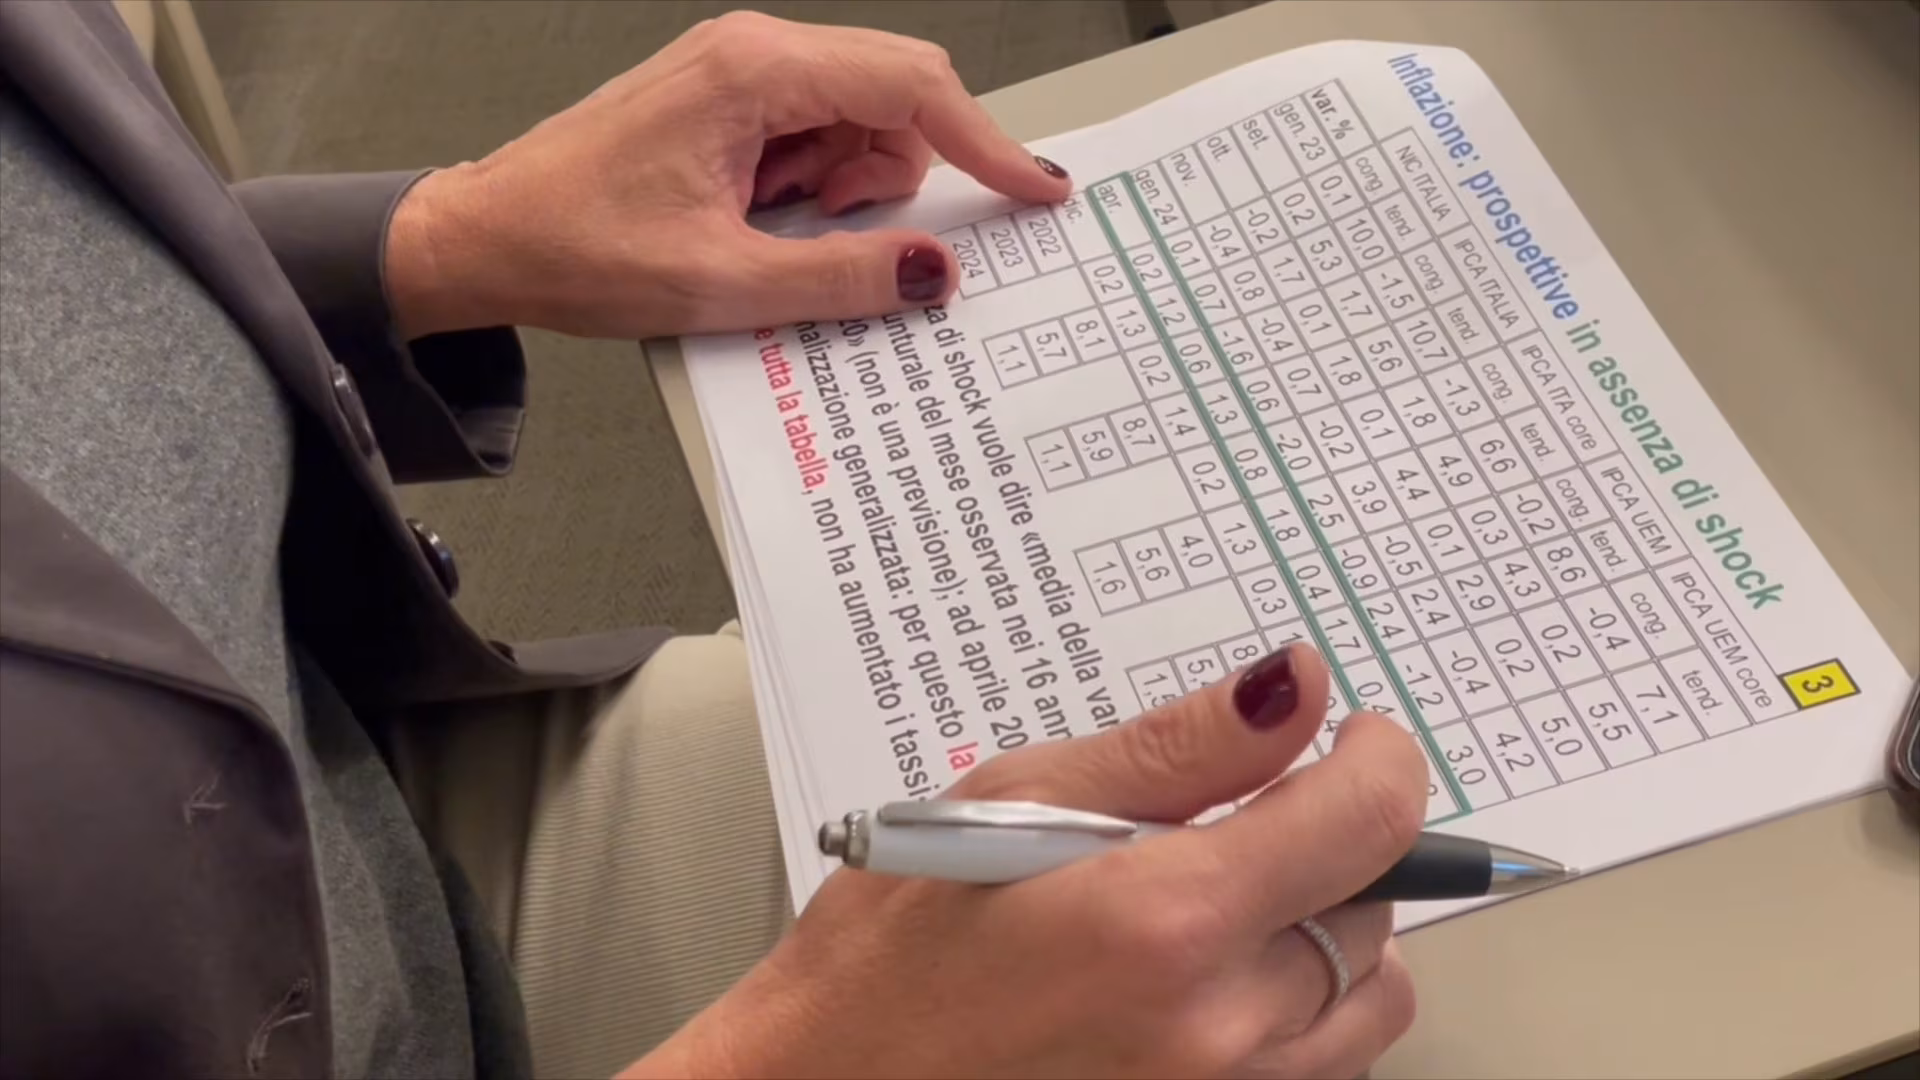 Inflazione: prospettive in assenza di shock
3
NIC ITALIA IPCA ITALIA IPCA ITA core IPCA UEM IPCA UEM core
var. % cong. tend. cong. tend cong. tend. cong. tend. cong. tend.
gen. 23 0,1 10,0 -1,5 10,7 -1,3 6,6 -0,2 8,6 -0,4 7,1
set. 0,2 5,3 1,7 5,6 1,8 4,9 0,3 4,3 0,2 5,5
ott. -0,2 1,7 0,1 1,8 0,1 4,4 0,1 2,9 0,2 5,0
nov. -0,4 0,8 -0,4 0,7 -0,2 3,9 -0,5 2,4 -0,4 4,2
gen. 24 0,1 0,7 -1,6 0,6 -2,0 2,5 -0,9 2,4 -1,2 3,0
apr. 0,2 1,2 0,6 1,3 0,8 1,8 0,4 1,7 0,4
dic. 0,2 1,3 0,2 1,4 0,2 1,3 0,3
2022 8,1 8,7 4,0
2023 5,7 5,9 5,6
2024 1,1 1,1 1,6 1,5
di shock vuole dire «media della
del mese osservata nei 16
(non è una previsione); ad aprile
generalizzata: per questo la
e tutta la tabella, non ha aumentato i tassi